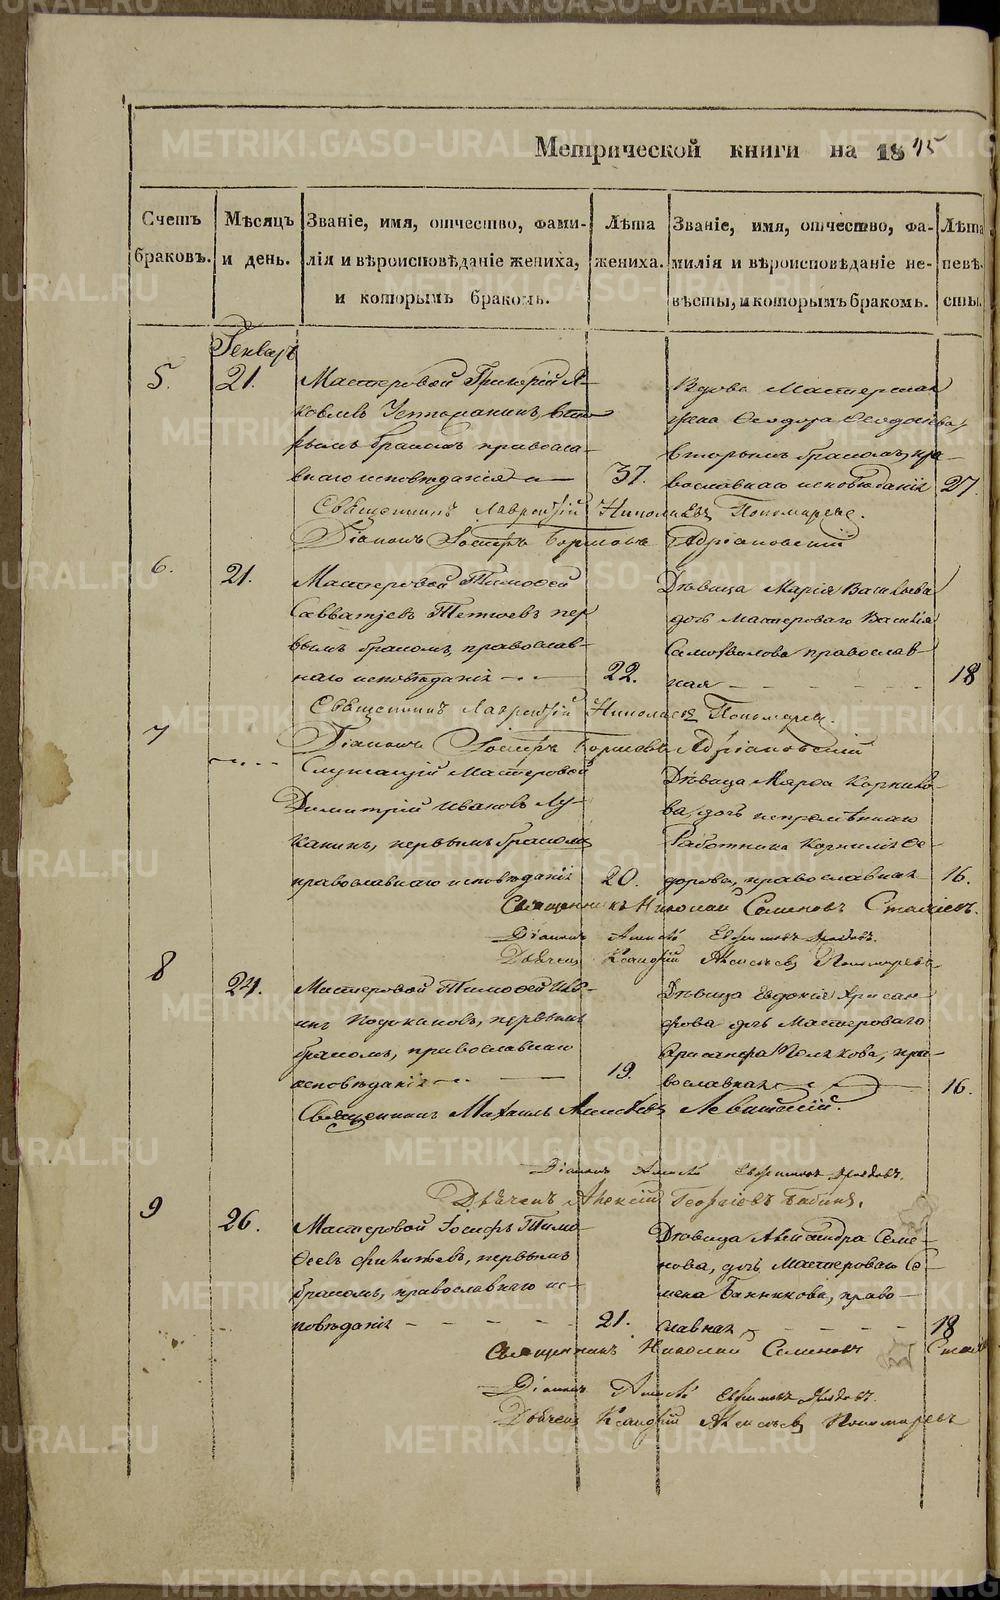 Метрической книги на 1845
Счетъ браковъ.
Мѣсяцъ и день.
Званіе, имя, отчество, фами-
лія и вѣроисповѣданіе жениха,
и которымъ бракомъ.
Лѣта жениха.
Званіе, имя, отчество, фа-
милія и вѣроисповѣданіе не-
вѣсты, и которымъ бракомъ.
Лѣта невѣ-
сты.
Генварь
5. 21.
Мастеровой Григорій Я-
ковлевъ
рымъ бракомъ правосла-
внаго исповѣданія
37.
Вдова Мастерская
жена Ѳеодора
вторымъ бракомъ, пра-
вославнаго исповѣданія
27
Священникъ Лаврентій Николаевъ Пономаревъ.
Діаконъ Іосифъ Адріановскій
6. 21.
Мастеровой Тимоѳей
Савватѣевъ пер
вымъ бракомъ, православ-
наго исповѣданія
22.
Дѣвица Марія Васильева
дочь Мастероваго Василія
Самойлова православ-
ная
18
Священникъ Лаврентій Николаевъ Пономаревъ.
Діаконъ Іосифъ Адріановскій
7
Служащій Мастеровой
Димитрій Ивановъ Лу-
канинъ, первымъ бракомъ
православнаго исповѣданія
20.
Дѣвица Марѳа Корнило-
ва, дочь непремѣннаго
Работника Корнилія Ѳе-
дорова, православная
16.
Священникъ Николай Семеновъ
Діаконъ Алексѣй
Дьячекъ Алексѣевъ Пономаревъ
8 24.
Мастеровой Тимоѳей Ива-
нъ первымъ
бракомъ, православнаго
исповѣданія
19.
Дѣвица Евдокія Хрисан-
фова дочь Мастероваго
Хрисанфа Полякова, пра-
вославная
16.
Священникъ Михаилъ Алексѣевъ Левитскій.
Діаконъ Алексѣй
Дьячекъ Алексій Георгіевъ Бабинъ.
9 26.
Мастеровой Іосифъ Тимо-
ѳеевъ первымъ
бракомъ, православнаго ис-
повѣданія
21.
Дѣвица Александра Семе-
нова, дочь Мастероваго Се-
мена Банникова, право-
славная
18
Священникъ Николай Семеновъ
Діаконъ Алексѣй
Дьячекъ Алексѣевъ Пономаревъ
METRIKI.GASO-URAL.RU